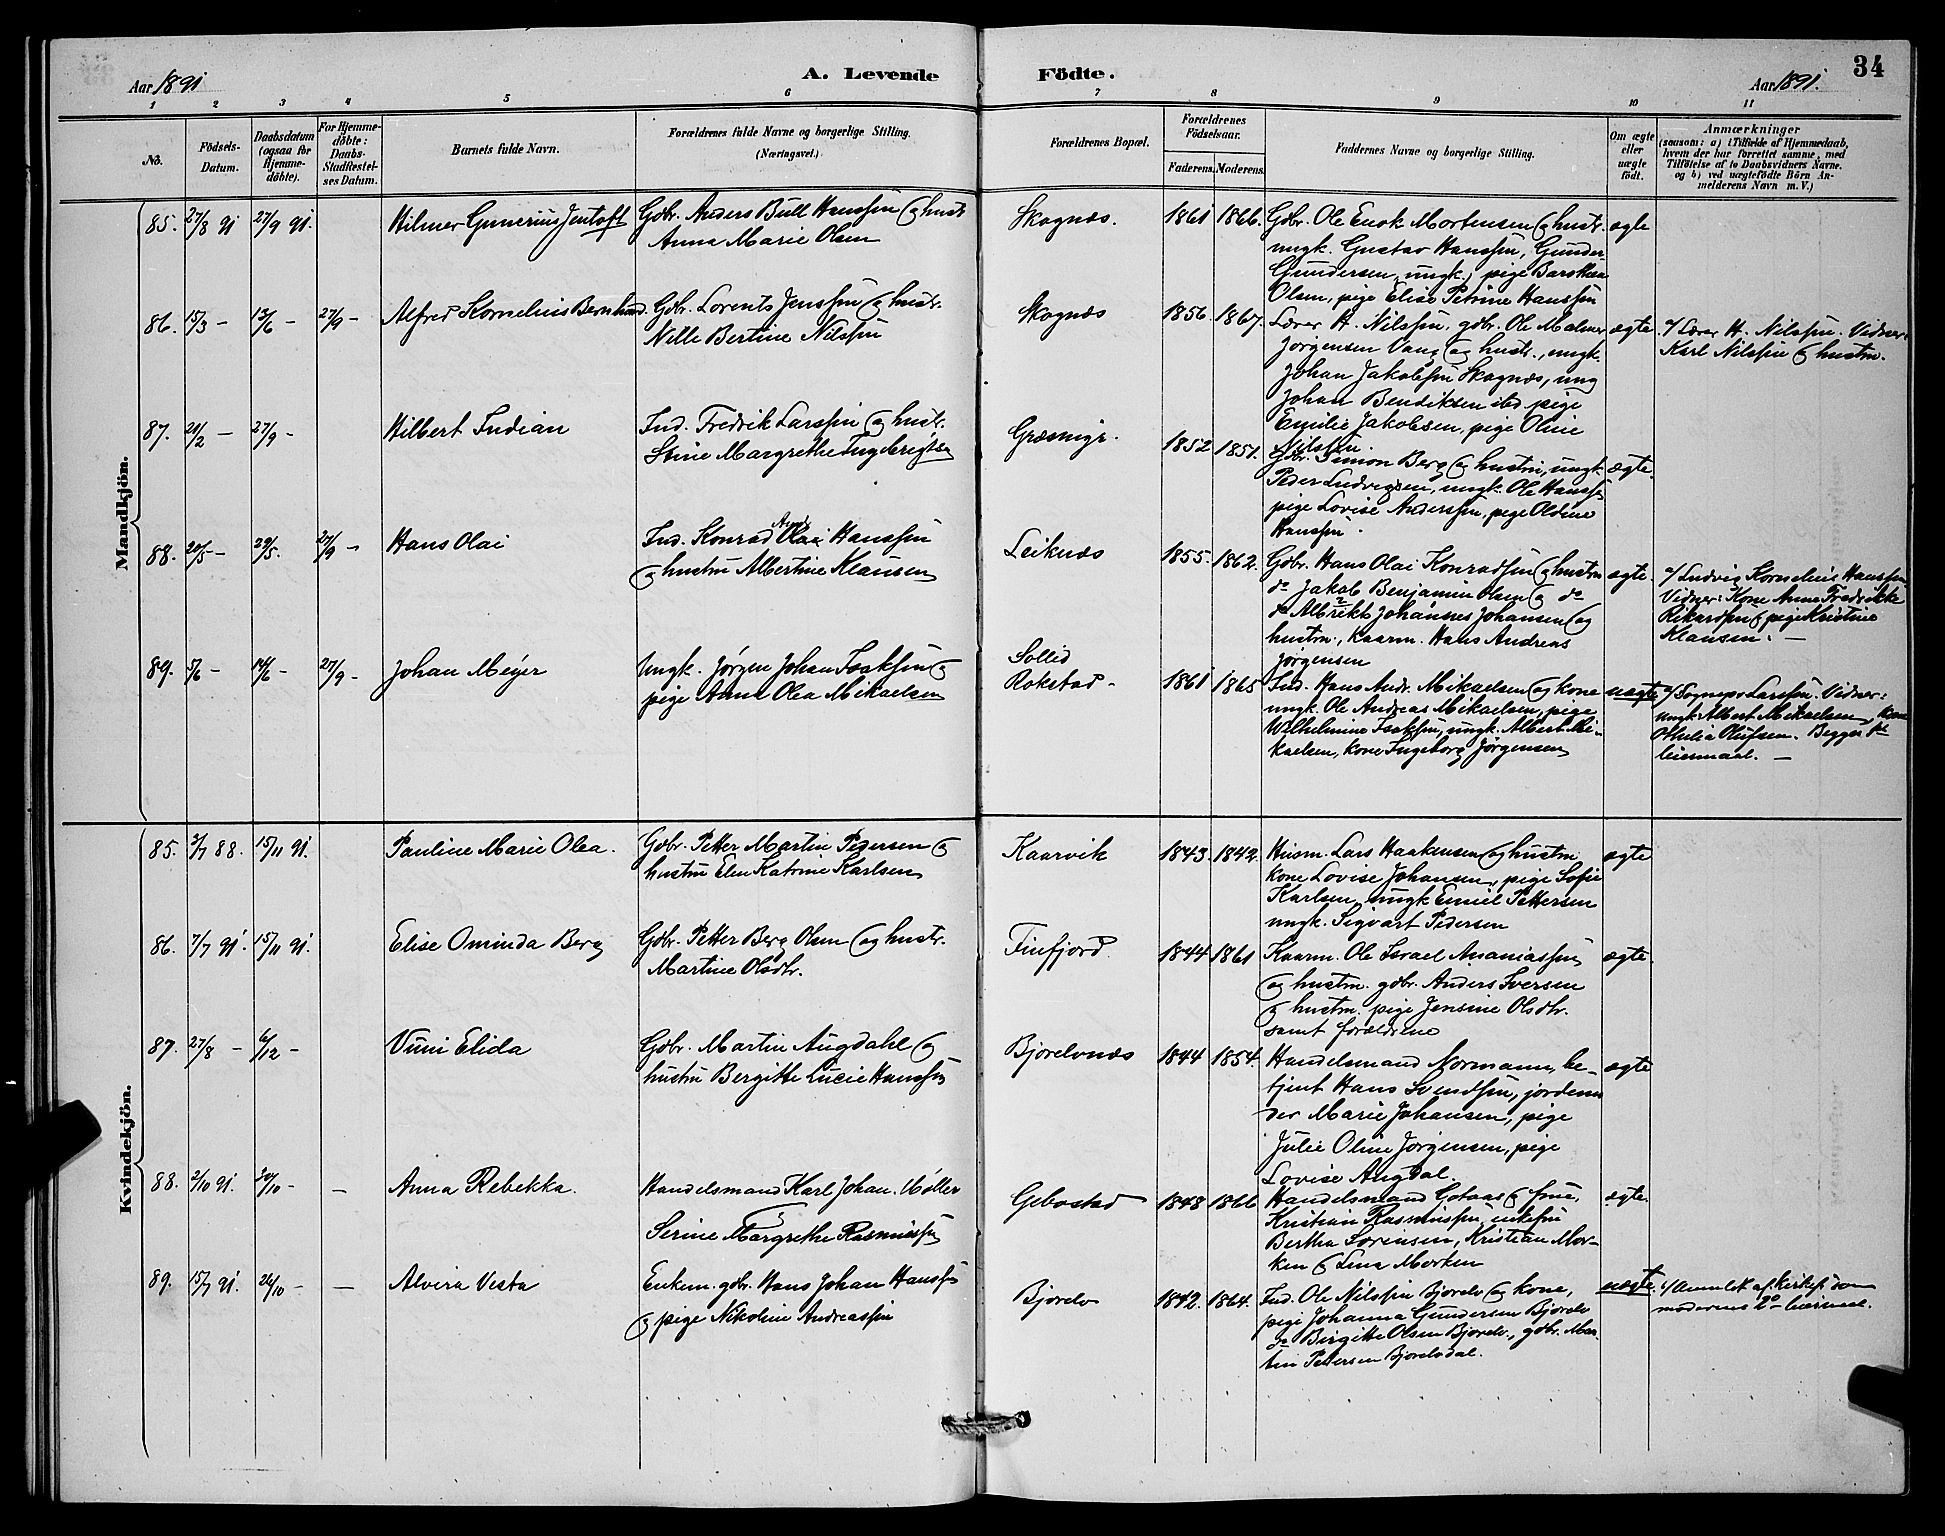 Aar 1891
A. Levende
Födte.
Aar 1891.
34
1 2 3 4 5 6 7 8 9 10 11
No.
Födsels-
Datum.
Daabsdatum
(ogsaa for
Hjemme-
döbte).
For Hjemme-
döbte:
Daabs-
Stadfæstel-
ses Datum.
Barnets fulde Navn.
Forældrenes fulde Navne og borgerlige Stilling.
(Næringsvei.)
Forældrenes Bopæl.
Forældrenes
Födselsaar.
Faderens. Moderens.
Faddernes Navne og borgerlige Stilling.
Om ægte
eller
uægte
født.
Anmærkninger
(saasom: a) i Tilfælde af Hjemmedaab,
hvem der har forrettet samme, med
Tilföielse af to Daabsvidners Navne.
og b) ved uægtefödte Börn An-
melderens Navn m. V.)
Mandkjön.
85. 27/8 91 27/9 91. Hilmer Gunerius Jentoft
Gdbr. Anders Bull Hanssen og hustr
Anna Marie Olsen
Skognæs. 1861 1866.
Gdbr. Ole Enok Mortensen og hustr.
ungk. Gustav Hanssen, Gunder
Gundersen, ungk., pige Barthea
Olsen, pige Elise Petrine Hanssen
ægte
86. 15/3 - 13/6 - 27/9 - Alfred Kornelius Bernhard
Gdbr. Lorents Jenssen og hustr.
Nille Bertine Nilssen
Skognæs 1856 1867.
Lærer H. Nilssen, gdbr. Ole Malmer
Jørgensen Vang og hustr., ungk.
Johan Jakobsen Skognæs, ung
Johan Bendiksen ibd. pige
Emilie Jakobsen, pige Oline
Nilssen
ægte.
a/ Lærer H. Nilssen. Vidner:
Karl Nilssen og hustru.
87. 21/2 - 27/9 - Hilbert Indian
Ind. Fredrik Larssen og hustr.
Stine Margrethe Ingebrigtsen
Græsmyr. 1852 1851.
Gdbr. Simon Berg og hustru, ungk.
Peder Ludvigsen, ungk. Ole Hanss.
pige Lovise Anderssen, pige Oldine
Hanssen.
ægte.
88. 20/5 - 29/5. 27/9 - Hans Olai
Ind. Konrad Olai Hanssen
og hustru Albertine Klausen
Leiknæs 1855. 1862.
Gdbr. Hans Olai Konradsen og hustru
do Jakob Benjamin Olsen og do
do Albrekt Johannes Johansen og
hustru, kaarm. Hans Andreas
Jørgensen
ægte.
a/ Ludvig Kornelius Hanssen
Vidner: Kone Anne Fredrikke
Rikardsen og pige Kristine
Klausen. —
89. 5/6 - 14/6 - 27/9 - Johan Meyer
Ungk. Jörgen Johan Isaksen og
pige Anna Olea Mikaelsen
Sollid
Rokstad - 1861 1865
Ind. Hans Andr. Mikaelsen og kone
ungk. Ole Andreas Mikaelsen, pige
Wilhelmine Isaksen, ungk. Albert Mi-
kaelsen, kone Ingeborg Jørgensen
uægte
a/ Sognepr. Larssen. Vidner:
ungk Albert Mikaelsen, kone
Othelia Olufsen. Begges 1ste
leiermaal. —
Kvindekjön.
85. 2/7 88. 15/11 91. Pauline Marie Olea.
Gdbr. Petter Martin Pedersen og
hustru Elen Katrine Karlsen
Kaarvik 1843. 1842.
Husm. Lars Haakensen og hustru
kone Lovise Johansen, pige Sofie
Karlsen, ungk Emiel Pettersen
ungk. Sigvart Pedersen
ægte
86. 7/7 91. 15/11 91. Elise Ominda Berg
Gdbr. Petter Berg Olsen og hustr.
Martine Olsdtr.
Finfjord. 1844 1861
Kaarm. Ole Israel Ananiassen
og hustru. gdbr. Anders Iversen
og hustru. pige Jensine Olsdtr.
samt forældrene
ægte.
87. 27/8 - 6/12 - Vuni Elida
Gdbr. Martin Augdahl og
hustru Bergitte Lucie Hanssen
Bjorelvnæs 1844 1854.
Handelsmand Normann, be-
tjent Hans Svendsen, jordemo
der Marie Johansen, pige
Julie Oline Jørgensen, pige
Lovise Augdal.
ægte
88. 2/10 91. 20/10 - — Anna Rebekka.
Handelsmand Karl Johan Møller
og
Serine Margrethe Rasmussen
Gebostad 1848 1866
Handelsmand Gotaas og frue,
Kristian Rasmussen, enkefru
Bertha Sörensen, Kristian Mor-
ken og Lina Morken
ægte.
89. 15/7 91. 26/10 - — Alvira Vesta
Enkem. gdbr. Hans Johan Hanss.
og pige Nikoline Andreassen
Bjorelv 1842. 1864.
Ind. Ole Nilssen Bjorelv og kone,
pige Johanna Gundersen Bjorelv
do Birgitte Olsen Bjorelv., gdbr. Mar
tin Petersen Bjorelvdal.
uægte.
a/ Anmeldt af kirkes.
moderens 2det leierm.